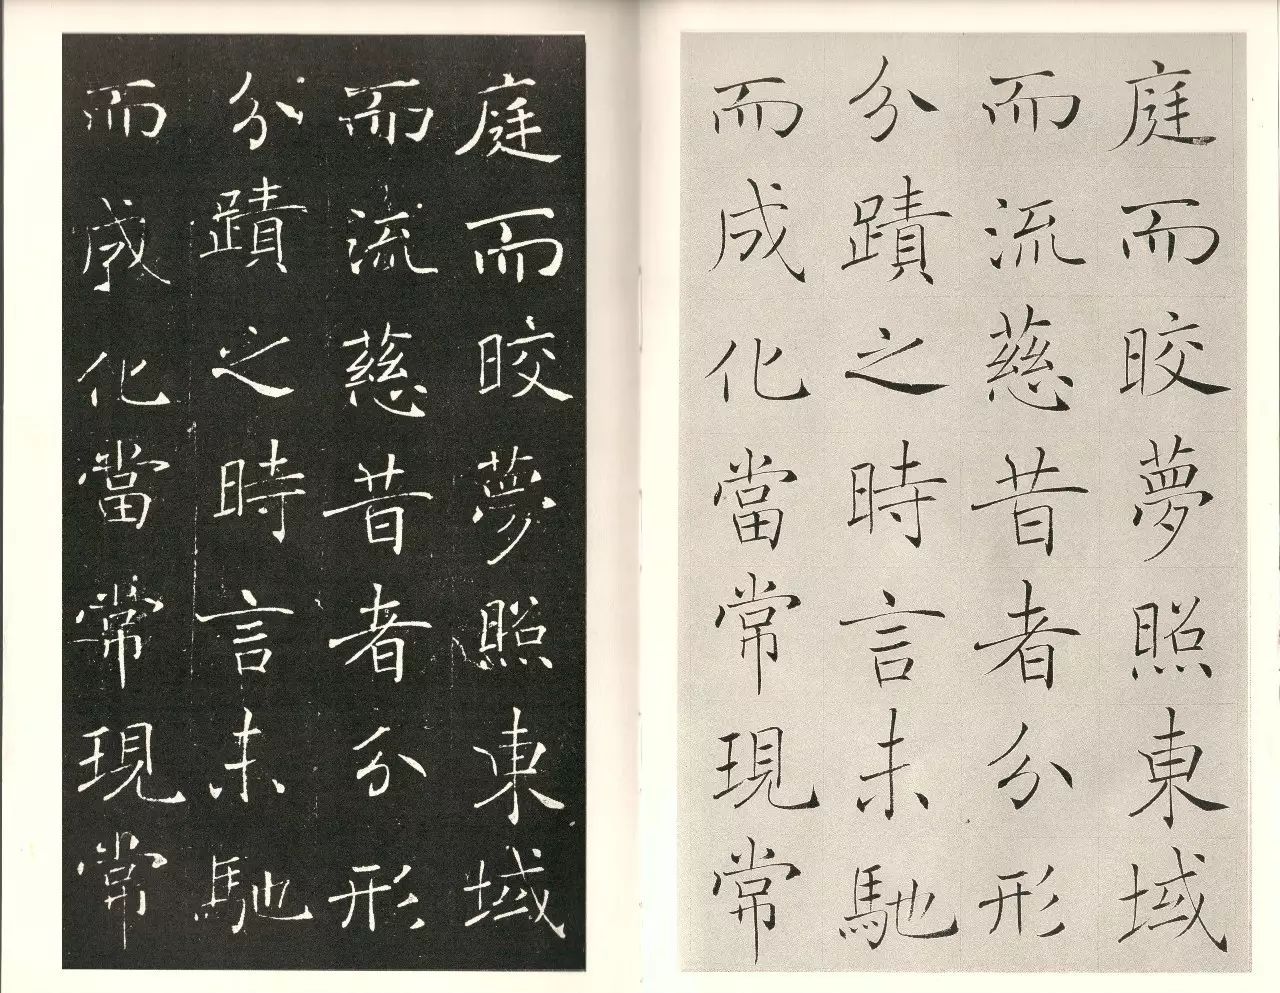 庭而晈夢照東域
而流慈昔者分形
分蹟之時言未馳
而成化當常現常
庭而晈夢照東域
而流慈昔者分形
分蹟之時言未馳
而成化當常現常